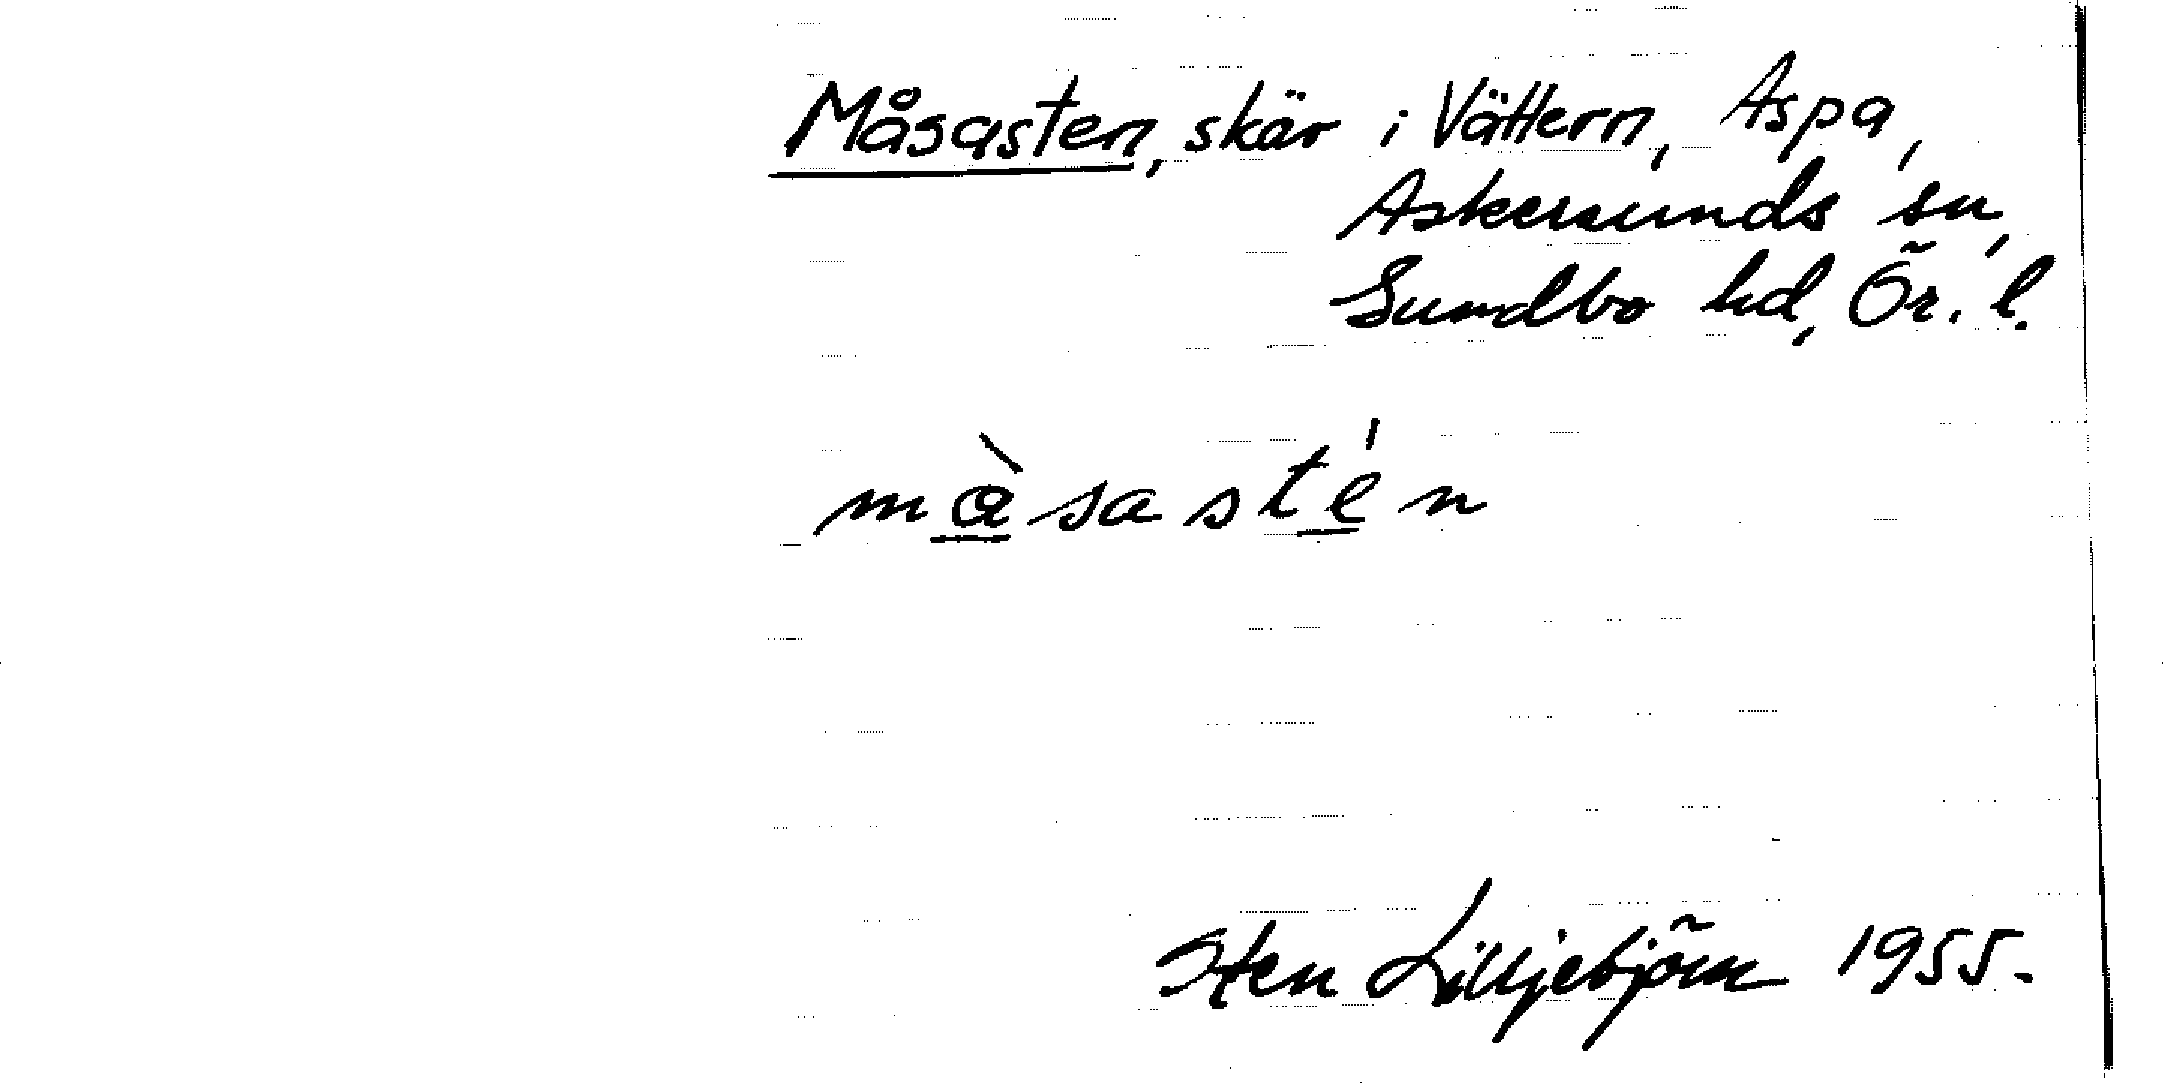 Måsasten, skär i Vättern, Aspa,
Askersunds sn,
Sundbo hd, Ör. l.
màsastén
Sten Lilljebjörn 1955.